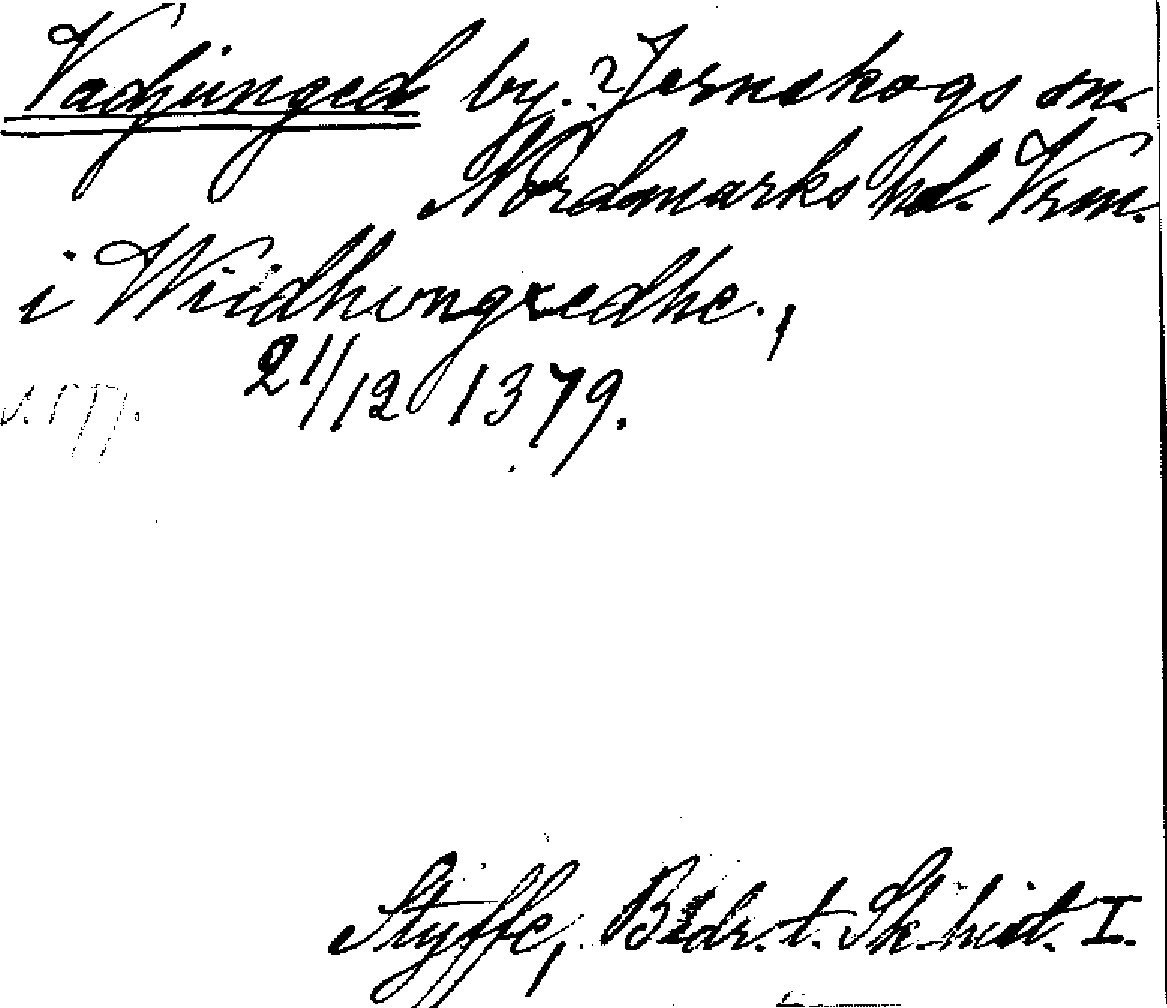 Vadjunged by. ? Jernskogs sn.
Nordmarks hd. Vrm.
i Wiidhungxedhe.,
21/12 1379.
Styffe, Bidr. t. Sk. hist. I.